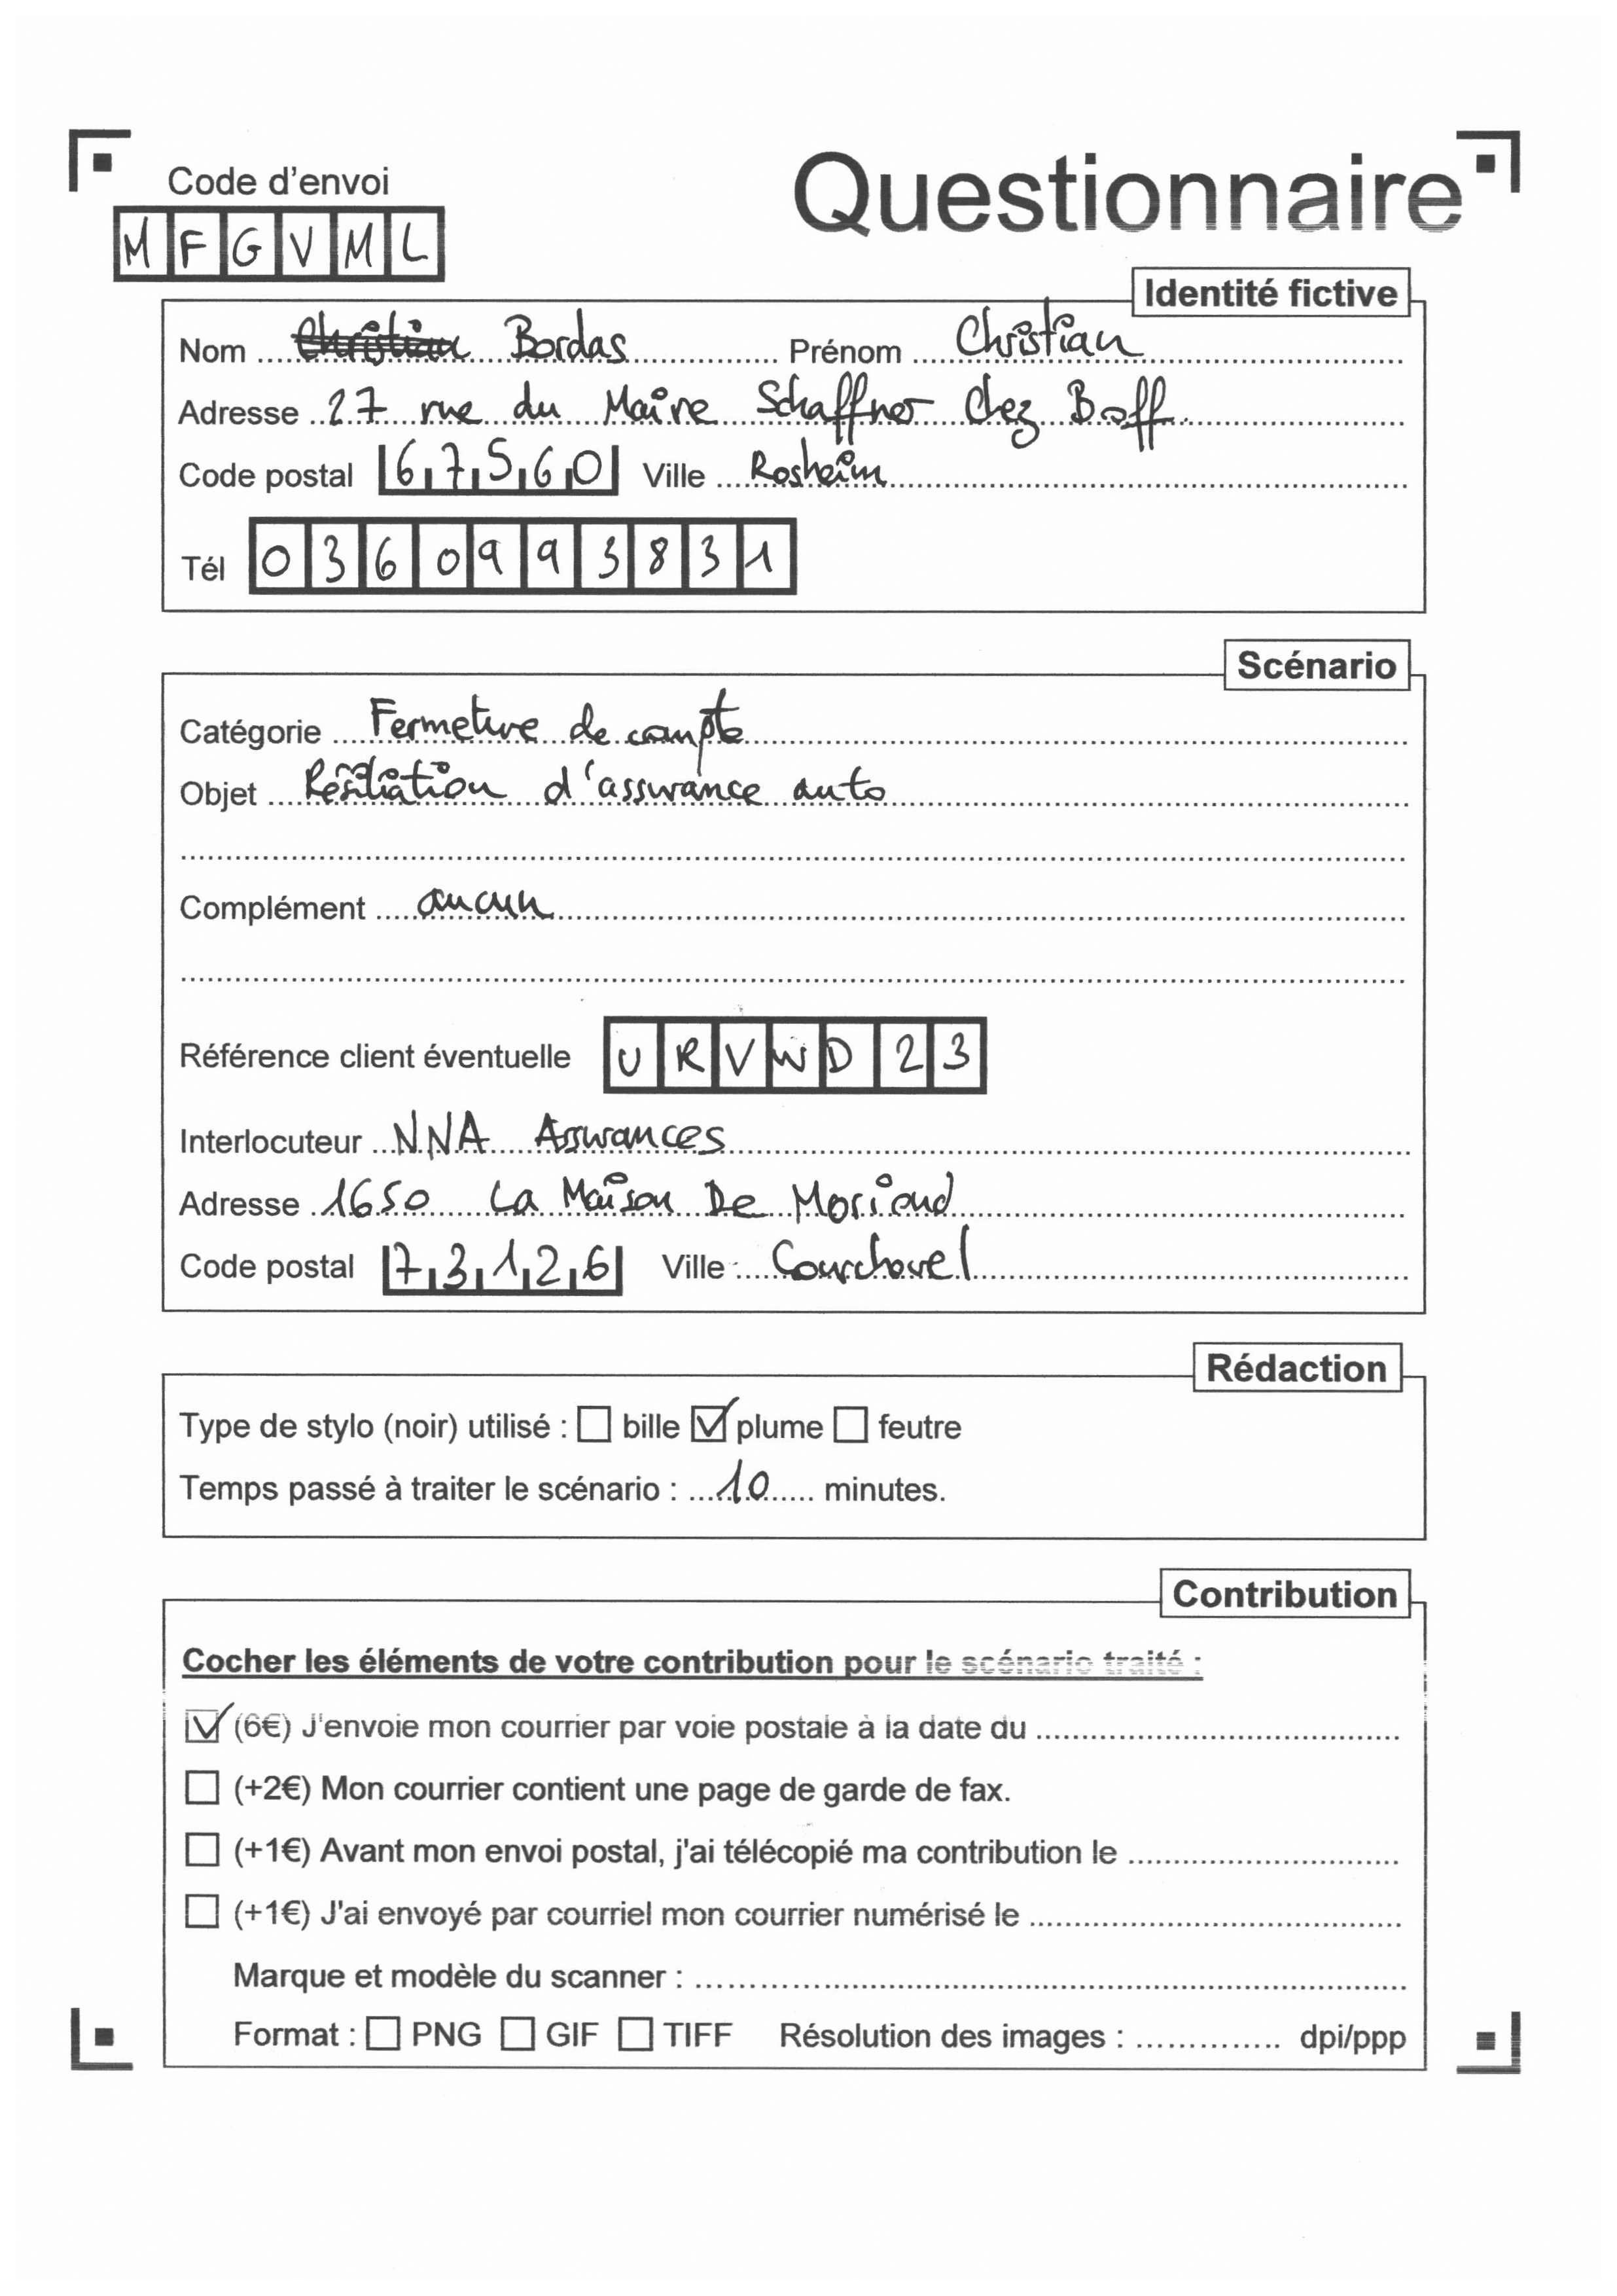 Questionnaire
Code d'envoi
MFGVML
Identité fictive
Nom Christian Bordas Prénom Christian
Adresse 27 rue du Maire Schaffner Chez Boff.
Code postal 67560 Ville Rosheim
Tél 0360993831
Scénario
Catégorie Fermeture de compte
Objet Résiliation d'assurance auto
Complément aucun
Référence client éventuelle URVWD23
Interlocuteur NNA Assurances
Adresse 1650 La Maison De Moriond
Code postal 73126 Ville Courchevel
Rédaction
Type de stylo (noir) utilisé : bille plume feutre
Temps passé à traiter le scénario : 10 minutes.
Contribution
Cocher les éléments de votre contribution pour le scénario traité :
(6€) J'envoie mon courrier par voie postale à la date du
(+2€) Mon courrier contient une page de garde de fax.
(+1€) Avant mon envoi postal, j'ai télécopié ma contribution le
(+1€) J'ai envoyé par courriel mon courrier numérisé le
Marque et modèle du scanner :
Format : PNG GIF TIFF Résolution des images : dpi/ppp